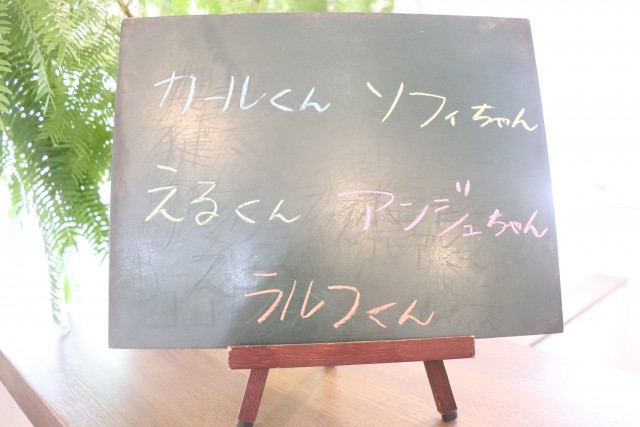 カールくん ソフィちゃん
えるくん アンジュちゃん
ラルフくん